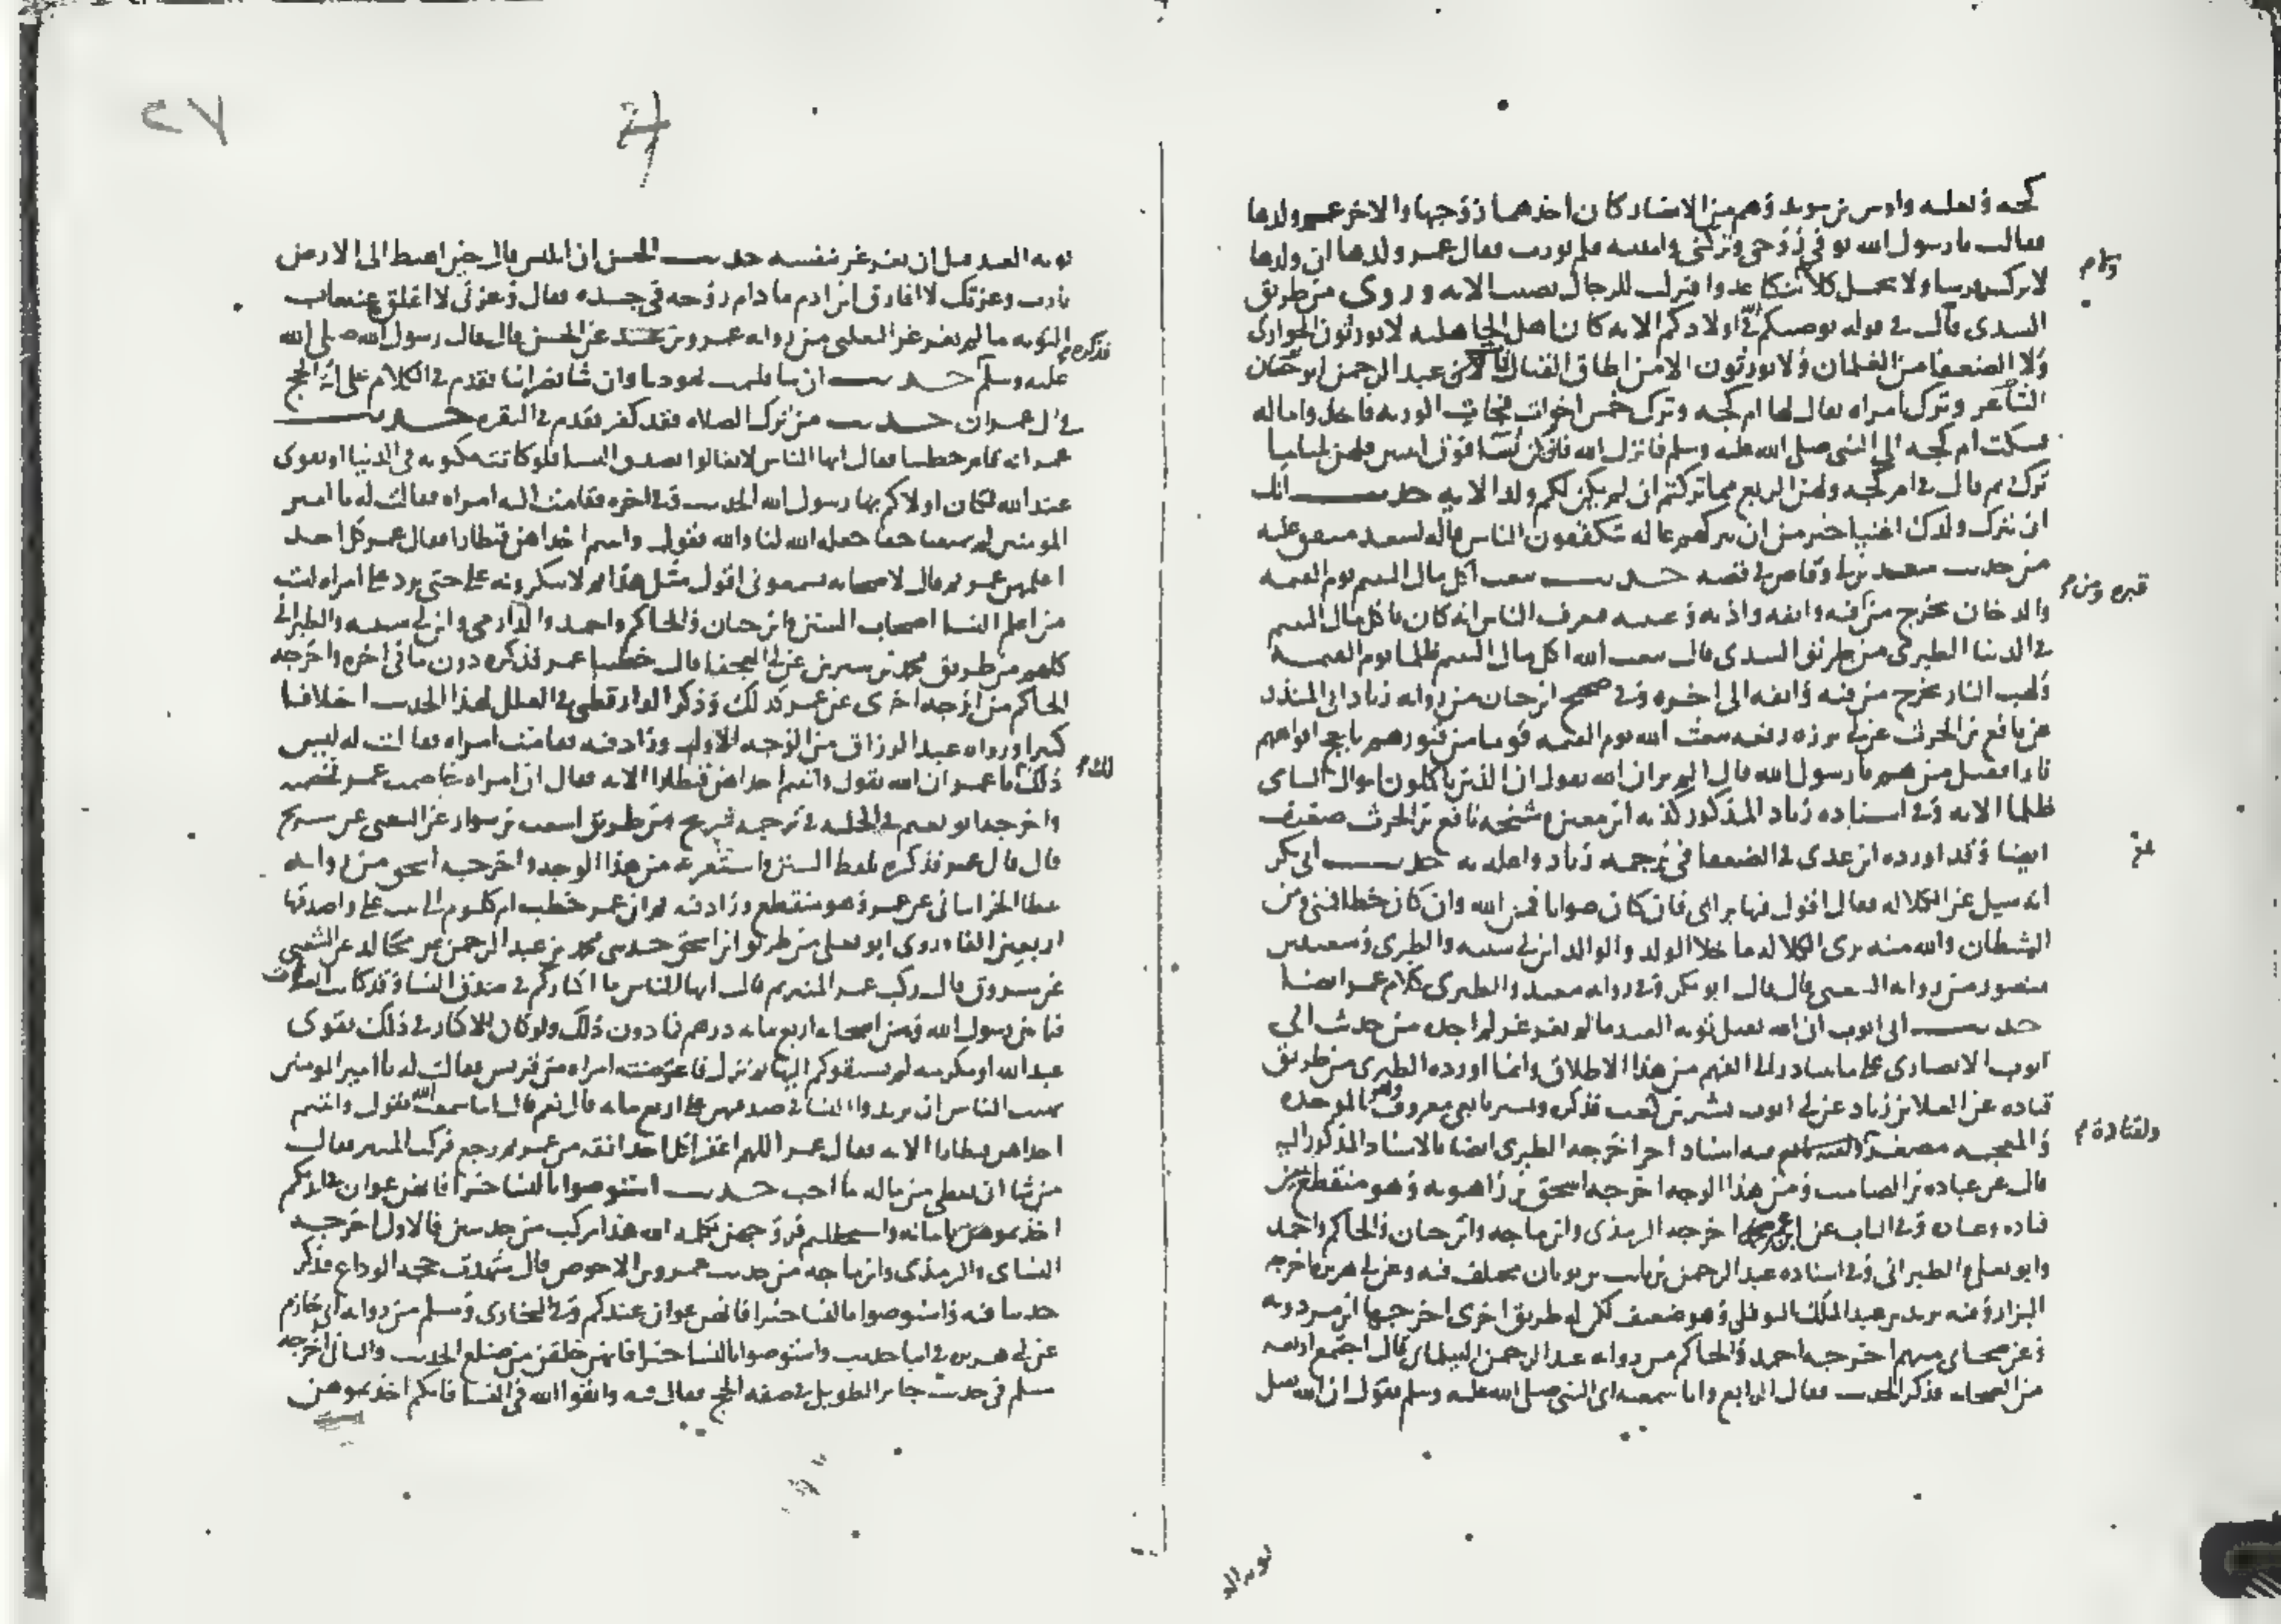 كجه وثعلبه واوس بن سويد وهم من الانصار كان احدهما زوجها والاخر عم ولدها
فقالت يا رسول الله توفي زوجي وتركني وابنته فلم نورث فقال عم ولدها ان ولدها
لا يركب فرسا ولا يحمل كلا ولا ينكا عدوا فنزلت للرجال نصيب الايه وروى من طريق
السدى قال في قوله يوصيكم الله في اولادكم الايه كان اهل الجاهليه لا يورثون الجوارى
ولا الضعفا من الغلمان ولا يورثون الا من اطاق القتال فمات عبد الرحمن اخو حسان
الشاعر وترك امراه يقال لها ام كجه وترك خمس اخوات فجات الورثه فاخذوا ماله
فشكت ام كجه الى النبي صلى الله عليه وسلم فانزل الله فان كن نسا فوق اثنتين فلهن ثلثا ما
ترك ثم قال في ام كجه ولهن الربع مما تركتم ان لم يكن لكم ولد الايه حديث انك
ان تترك ولدك اغنيا خير من ان تتركهم عاله يتكففون الناس قاله لسعد متفق عليه
من حديث سعد بن ابي وقاص في قصه حديث يبعث اكل مال اليتيم يوم القيمه
والدخان يخرج من فيه وانفه واذنيه وعينيه فيعرف الناس انه كان ياكل مال اليتيم
في الدنيا الطبرى من طريق السدى قال يبعث الله اكل مال اليتيم ظلما يوم القيمه
ولهب النار يخرج من فيه وانفه الى اخره وفي صحيح ابن حبان من روايه زياد ابي المنذر
عن نافع بن الحرث عن ابي برزه رفعه يبعث الله يوم القيمه قوما من قبورهم تاجج افواههم
نارا فقيل من هم يا رسول الله قال الم تر ان الله يقول ان الذين ياكلون اموال اليتامى
ظلما الايه وفي اسناده زياد المذكور كذبه ابن معين وشيخه نافع بن الحرث ضعيف
ايضا وقد اورده ابن عدى في الضعفا في ترجمه زياد واعله به حديث ابي بكر
انه سيل عن الكلاله فقال اقول فيها برائي فان كان صوابا فمن الله وان كان خطا فمني ومن
الشيطان والله منه برى الكلاله ما خلا الولد والوالد ابن ابي شيبه والطبرى وسعيد بن
منصور من روايه الشعبى قال قال ابو بكر وفي روايه سعيد والطبرى كلام عمر ايضا
حديث ابي ايوب ان الله يقبل توبه العبد ما لم يغرغر لم اجده من حديث ابي
ايوب الانصارى على ما يتبادر الى الفهم من هذا الاطلاق وانما اورده الطبرى من طريق
قتاده عن العلا بن زياد عن ابي ايوب بشير بن كعب فذكره وبشير تابعي معروف وهو بالموحده
والمعجمه مصغر فيه اسناد اخر اخرجه الطبرى ايضا بالاسناد المذكور اليه
قال عن عباده بن الصامت ومن هذا الوجه اخرجه اسحق بن راهويه وهو منقطع بين
قتاده وعباده وفي الباب عن ابن عمر اخرجه الترمذى وابن ماجه وابن حبان والحاكم واحمد
وابو يعلى والطبراني وفي اسناده عبد الرحمن بن ثابت بن ثوبان مختلف فيه وعن ابي هريره اخرجه
البزار وفيه يزيد بن عبد الملك النوفلي وهو ضعيف لكن له طريق اخرى اخرجها ابن مردويه
وعن صحابي مبهم اخرجه احمد والحاكم من روايه عبد الرحمن البيلماني قال اجتمع اربعه
من الصحابه فذكر الحديث فقال الرابع وانا سمعته اى النبي صلى الله عليه وسلم يقول ان الله يقبل
قبره ومن
عن
ولقتادة
توبه ال
توبه العبد قبل ان يغرغر بنفسه حديث الحسن ان ابليس قال حين اهبط الى الارض
يا رب وعزتك لا افارق ابن ادم ما دام روحه في جسده فقال وعزتي لا اغلق عنه باب
التوبه ما لم يغرغر الثعلبي من روايه عمرو بن عبيد عن الحسن قال قال رسول الله صلى الله
عليه وسلم فذكره حديث ان شا فليمت يهوديا وان شا نصرانيا تقدم في الكلام على ايه الحج
في ال عمران حديث من ترك الصلاه فقد كفر تقدم في البقره حديث
عمر انه قام خطيبا فقال ايها الناس لا تغالوا بصدق النسا فلو كانت مكرمه في الدنيا او تقوى
عند الله لكان اولاكم بها رسول الله الحديث وفي اخره فقامت اليه امراه فقالت له يا امير
المومنين لم تمنعنا حقا جعله الله لنا والله يقول واتيتم احداهن قنطارا فقال عمر كل احد
اعلم من عمر ثم قال لاصحابه تسمعوني اقول مثل هذا ثم لا تنكرونه علي حتى يرد علي امراه ليست
من اعلم النسا اصحاب السنن وابن حبان والحاكم واحمد والدارمي وابن ابي شيبه والطبراني
كلهم من طريق محمد بن سيرين عن ابي العجفا قال خطبنا عمر فذكره دون ما في اخره واخرجه
الحاكم من اوجه اخرى عن عمر كذلك وذكر الدارقطني في العلل لهذا الحديث اختلافا
كثيرا ورواه عبد الرزاق من الوجه الاول وزاد فيه فقامت امراه فقالت له ليس
ذلك لك يا عمر ان الله يقول واتيتم احداهن قنطارا الايه فقال ان امراه خاصمت عمر فخصمته
واخرجه ابو نعيم في الحليه في ترجمه شريح ومن طريق اشعث بن سوار عن الشعبى عن شريح
قال قال عمر فذكره بلفظ السنن واستغربه من هذا الوجه واخرجه اسحق من روايه
عطا الخراساني عن عمر وهو منقطع وزاد فيه ثم ان عمر خطب ام كلثوم الى علي واصدقها
اربعين الفا وروى ابو يعلى من طريق ابن اسحق حدثني محمد بن عبد الرحمن عن مجالد عن الشعبي
عن مسروق قال ركب عمر المنبر ثم قال ايها الناس ما اكثاركم في صدق النسا وقد كانت الصدقات
فيما بين رسول الله وبين اصحابه اربع مايه درهم فما دون ذلك ولو كان الاكثار في ذلك تقوى
عند الله او مكرمه لم تسبقوكم اليها ثم نزل فاعترضته امراه من قريش فقالت له يا امير المومنين
نهيت الناس ان يزيدوا النسا في صدقهن على اربع مايه قال نعم قال اما سمعت الله يقول واتيتم
احداهن قنطارا الايه فقال عمر اللهم اغفر اكل احد افقه من عمر ثم رجع فركب المنبر فقال
من شا ان يعطي من ماله ما احب حديث استوصوا بالنسا خيرا فانهن عوان عندكم
اخذتموهن بامانه واستحللتم فروجهن بكلمه الله هذا مركب من حديثين فالاول اخرجه
النساى والترمذى وابن ماجه من حديث عمرو بن الاحوص قال شهدت حجه الوداع فذكر
حديثا فيه واستوصوا بالنسا خيرا فانهن عوان عندكم وفي البخارى ومسلم من روايه ابي حازم
عن ابي هريره في اثنا حديث واستوصوا بالنسا خيرا فانهن خلقن من ضلع الحديث والثاني اخرجه
مسلم في حديث جابر الطويل في صفه الحج فقال فيه واتقوا الله في النسا فانكم اخذتموهن